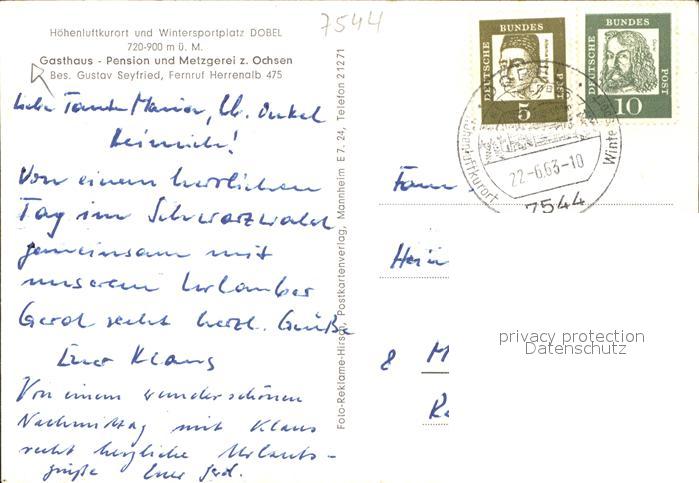 7544
Höhenluftkurort und Wintersportplatz DOBEL
720-900 m ü. M.
Gasthaus - Pension und Metzgerei z. Ochsen
Bes. Gustav Seyfried, Fernruf Herrenalb 475
Liebe Tante Maria, lb. Onkel
Heinrich!
Von einem herrlichen
Tag im Schwarzwald
gemeinsam mit
unserem Urlauber
Gerd recht herzl. Grüße
Euer Klaus
Von einem wunderschönen
Nachmittag mit Klaus
recht herzliche Urlaubs-
grüße Euer Gerd.
Foto-Reklame-Hirsch, Postkartenverlag, Mannheim E 7, 24, Telefon 21271
DEUTSCHE BUNDES POST
5
DEUTSCHE BUNDES POST
10
luftkurort
Winte
22-6.63-10
7544
Fam.
Hein
8 M
privacy protection
Datenschutz